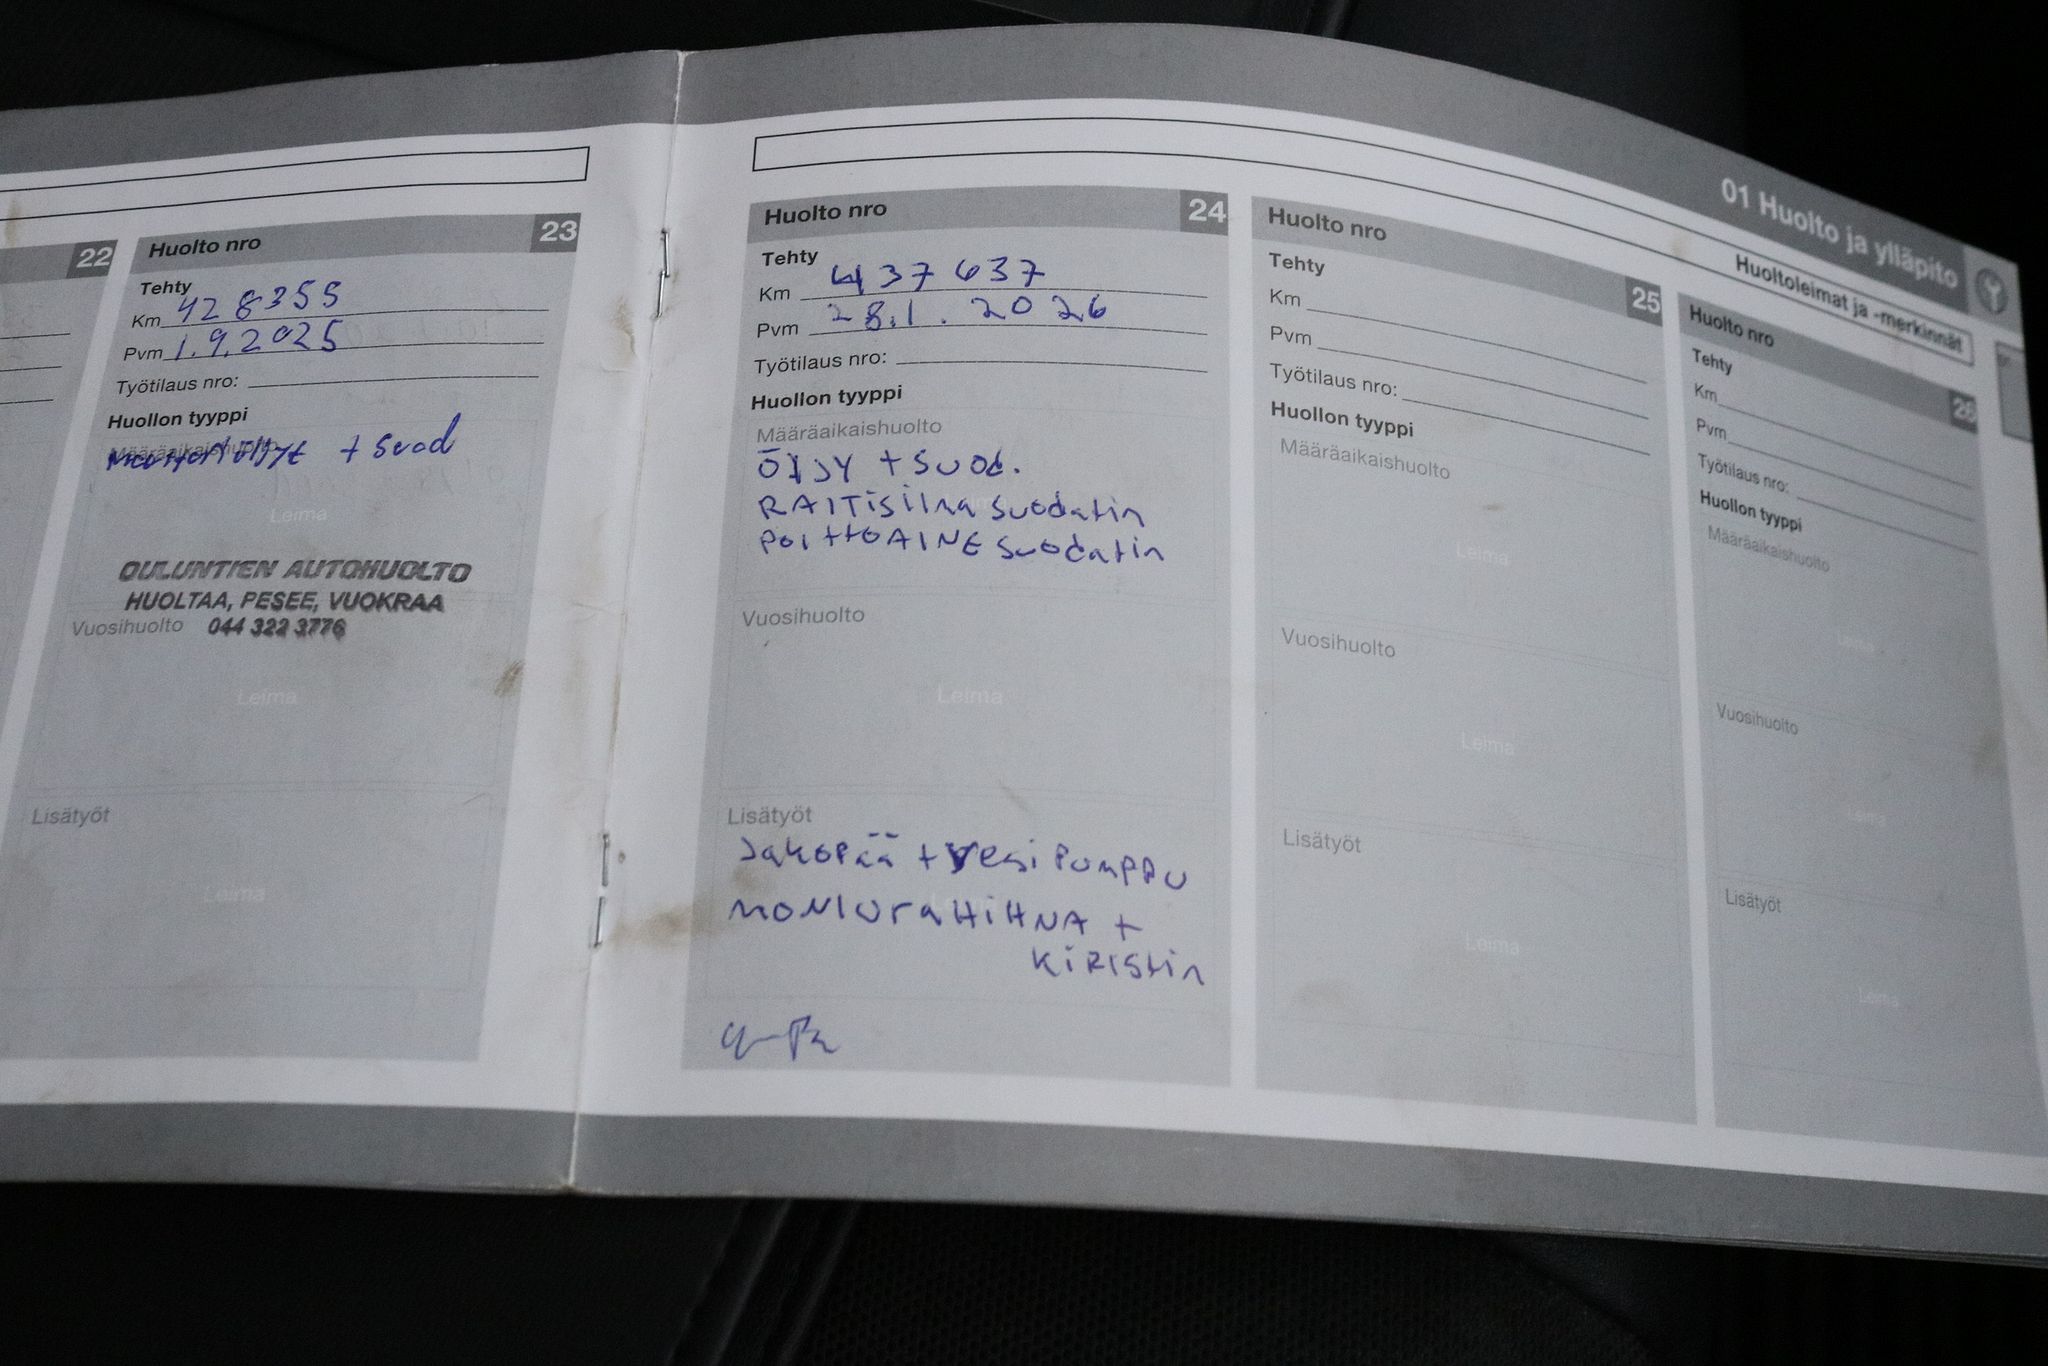 01 Huolto ja ylläpito
Huoltoleimat ja -merkinnät
22
Huolto nro 23
Tehty
Km 428355
Pvm 1.9.2025
Työtilaus nro:
Huollon tyyppi
Määräaikaishuolto
Moottoriöljyt + suod
Leima
OULUNTIEN AUTOHUOLTO
HUOLTAA, PESEE, VUOKRAA
Vuosihuolto 044 322 3776
Leima
Lisätyöt
Leima
Huolto nro 24
Tehty
Km 437637
Pvm 28.1.2026
Työtilaus nro:
Huollon tyyppi
Määräaikaishuolto
ÖlJY + suod.
RAITISilma suodatin
POlttOAINE suodatin
Vuosihuolto
Leima
Lisätyöt
Jakopää + vesipumppu
MONIuraHIHNA +
KiRIStin
Huolto nro 25
Tehty
Km
Pvm
Työtilaus nro:
Huollon tyyppi
Määräaikaishuolto
Leima
Vuosihuolto
Leima
Lisätyöt
Leima
Huolto nro 26
Tehty
Km
Pvm
Työtilaus nro:
Huollon tyyppi
Määräaikaishuolto
Leima
Vuosihuolto
Leima
Lisätyöt
Leima